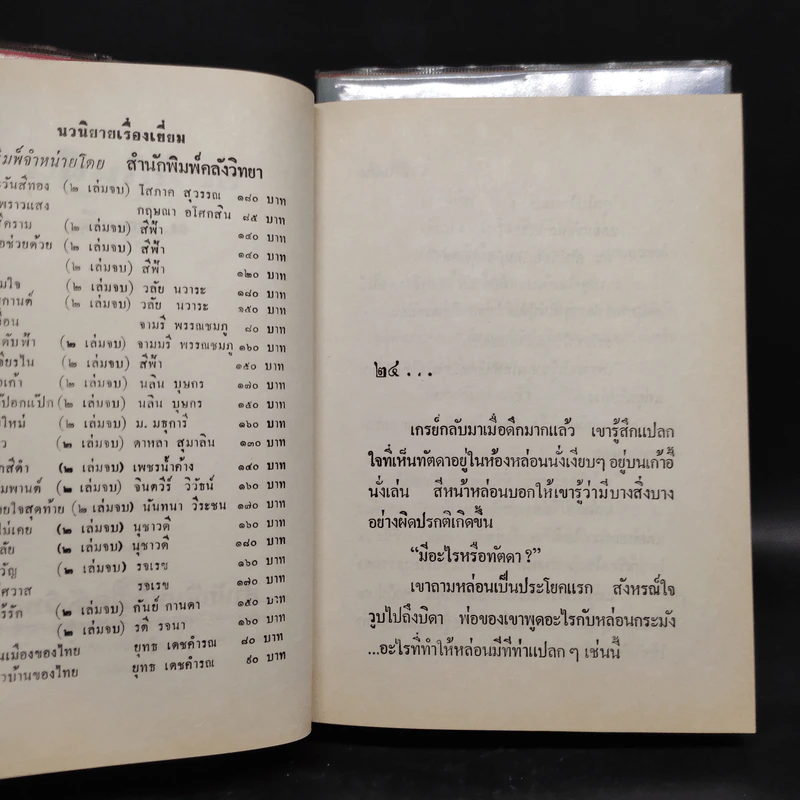 นวนิยายเรื่องเยี่ยม
พิมพ์จำหน่ายโดย สำนักพิมพ์คลังวิทยา
(๒ เล่มจบ) โสภาค สุวรรณ ๑๘๐ บาท
กฤษณา อโศกสิน ๘๕ บาท
(๒ เล่มจบ) สีฟ้า ๑๔๐ บาท
(๒ เล่มจบ) สีฟ้า ๑๔๐ บาท
(๒ เล่มจบ) สีฟ้า ๑๒๐ บาท
(๒ เล่มจบ) วลัย นวาระ ๑๘๐ บาท
(๒ เล่มจบ) วลัย นวาระ ๑๕๐ บาท
จามรี พรรณชมภู ๘๐ บาท
(๒ เล่มจบ) จามมรี พรรณชมภู ๑๖๐ บาท
(๒ เล่มจบ) สีฟ้า ๑๕๐ บาท
(๒ เล่มจบ) นลิน บุษกร ๑๗๐ บาท
(๒ เล่มจบ) นลิน บุษกร ๑๕๐ บาท
(๒ เล่มจบ) ม. มธุการี ๑๖๐ บาท
(๒ เล่มจบ) ดาหลา สุมาลิน ๑๓๐ บาท
(๒ เล่มจบ) เพชรน้ำค้าง ๑๔๐ บาท
(๒ เล่มจบ) จินตวีร์ วิวัธน์ ๑๖๐ บาท
ยใจสุดท้าย (๒ เล่มจบ) นันทนา วีระชน ๑๗๐ บาท
ไม่เคย (๒ เล่มจบ) นุชาวดี ๑๖๐ บาท
(๒ เล่มจบ) นุชาวดี ๑๘๐ บาท
(๒ เล่มจบ) รจเรข ๑๖๐ บาท
รจเรข ๑๗๐ บาท
(๒ เล่มจบ) กันย์ กานดา ๑๕๐ บาท
(๒ เล่มจบ) รตี รจนา ๑๖๐ บาท
นเมืองของไทย ยุทธ เดชคำรณ ๘๐ บาท
วบ้านของไทย ยุทธ เดชคำรณ ๙๐ บาท
๒๔...
เกรย์กลับมาเมื่อดึกมากแล้ว เขารู้สึกแปลก
ใจที่เห็นทัตดาอยู่ในห้องหล่อนนั่งเงียบๆ อยู่บนเก้าอี้
นั่งเล่น สีหน้าหล่อนบอกให้เขารู้ว่ามีบางสิ่งบาง
อย่างผิดปรกติเกิดขึ้น
“มีอะไรหรือทัตดา?”
เขาถามหล่อนเป็นประโยคแรก สังหรณ์ใจ
วูบไปถึงบิดา พ่อของเขาพูดอะไรกับหล่อนกระมัง
...อะไรที่ทำให้หล่อนมีทีท่าแปลก ๆ เช่นนี้